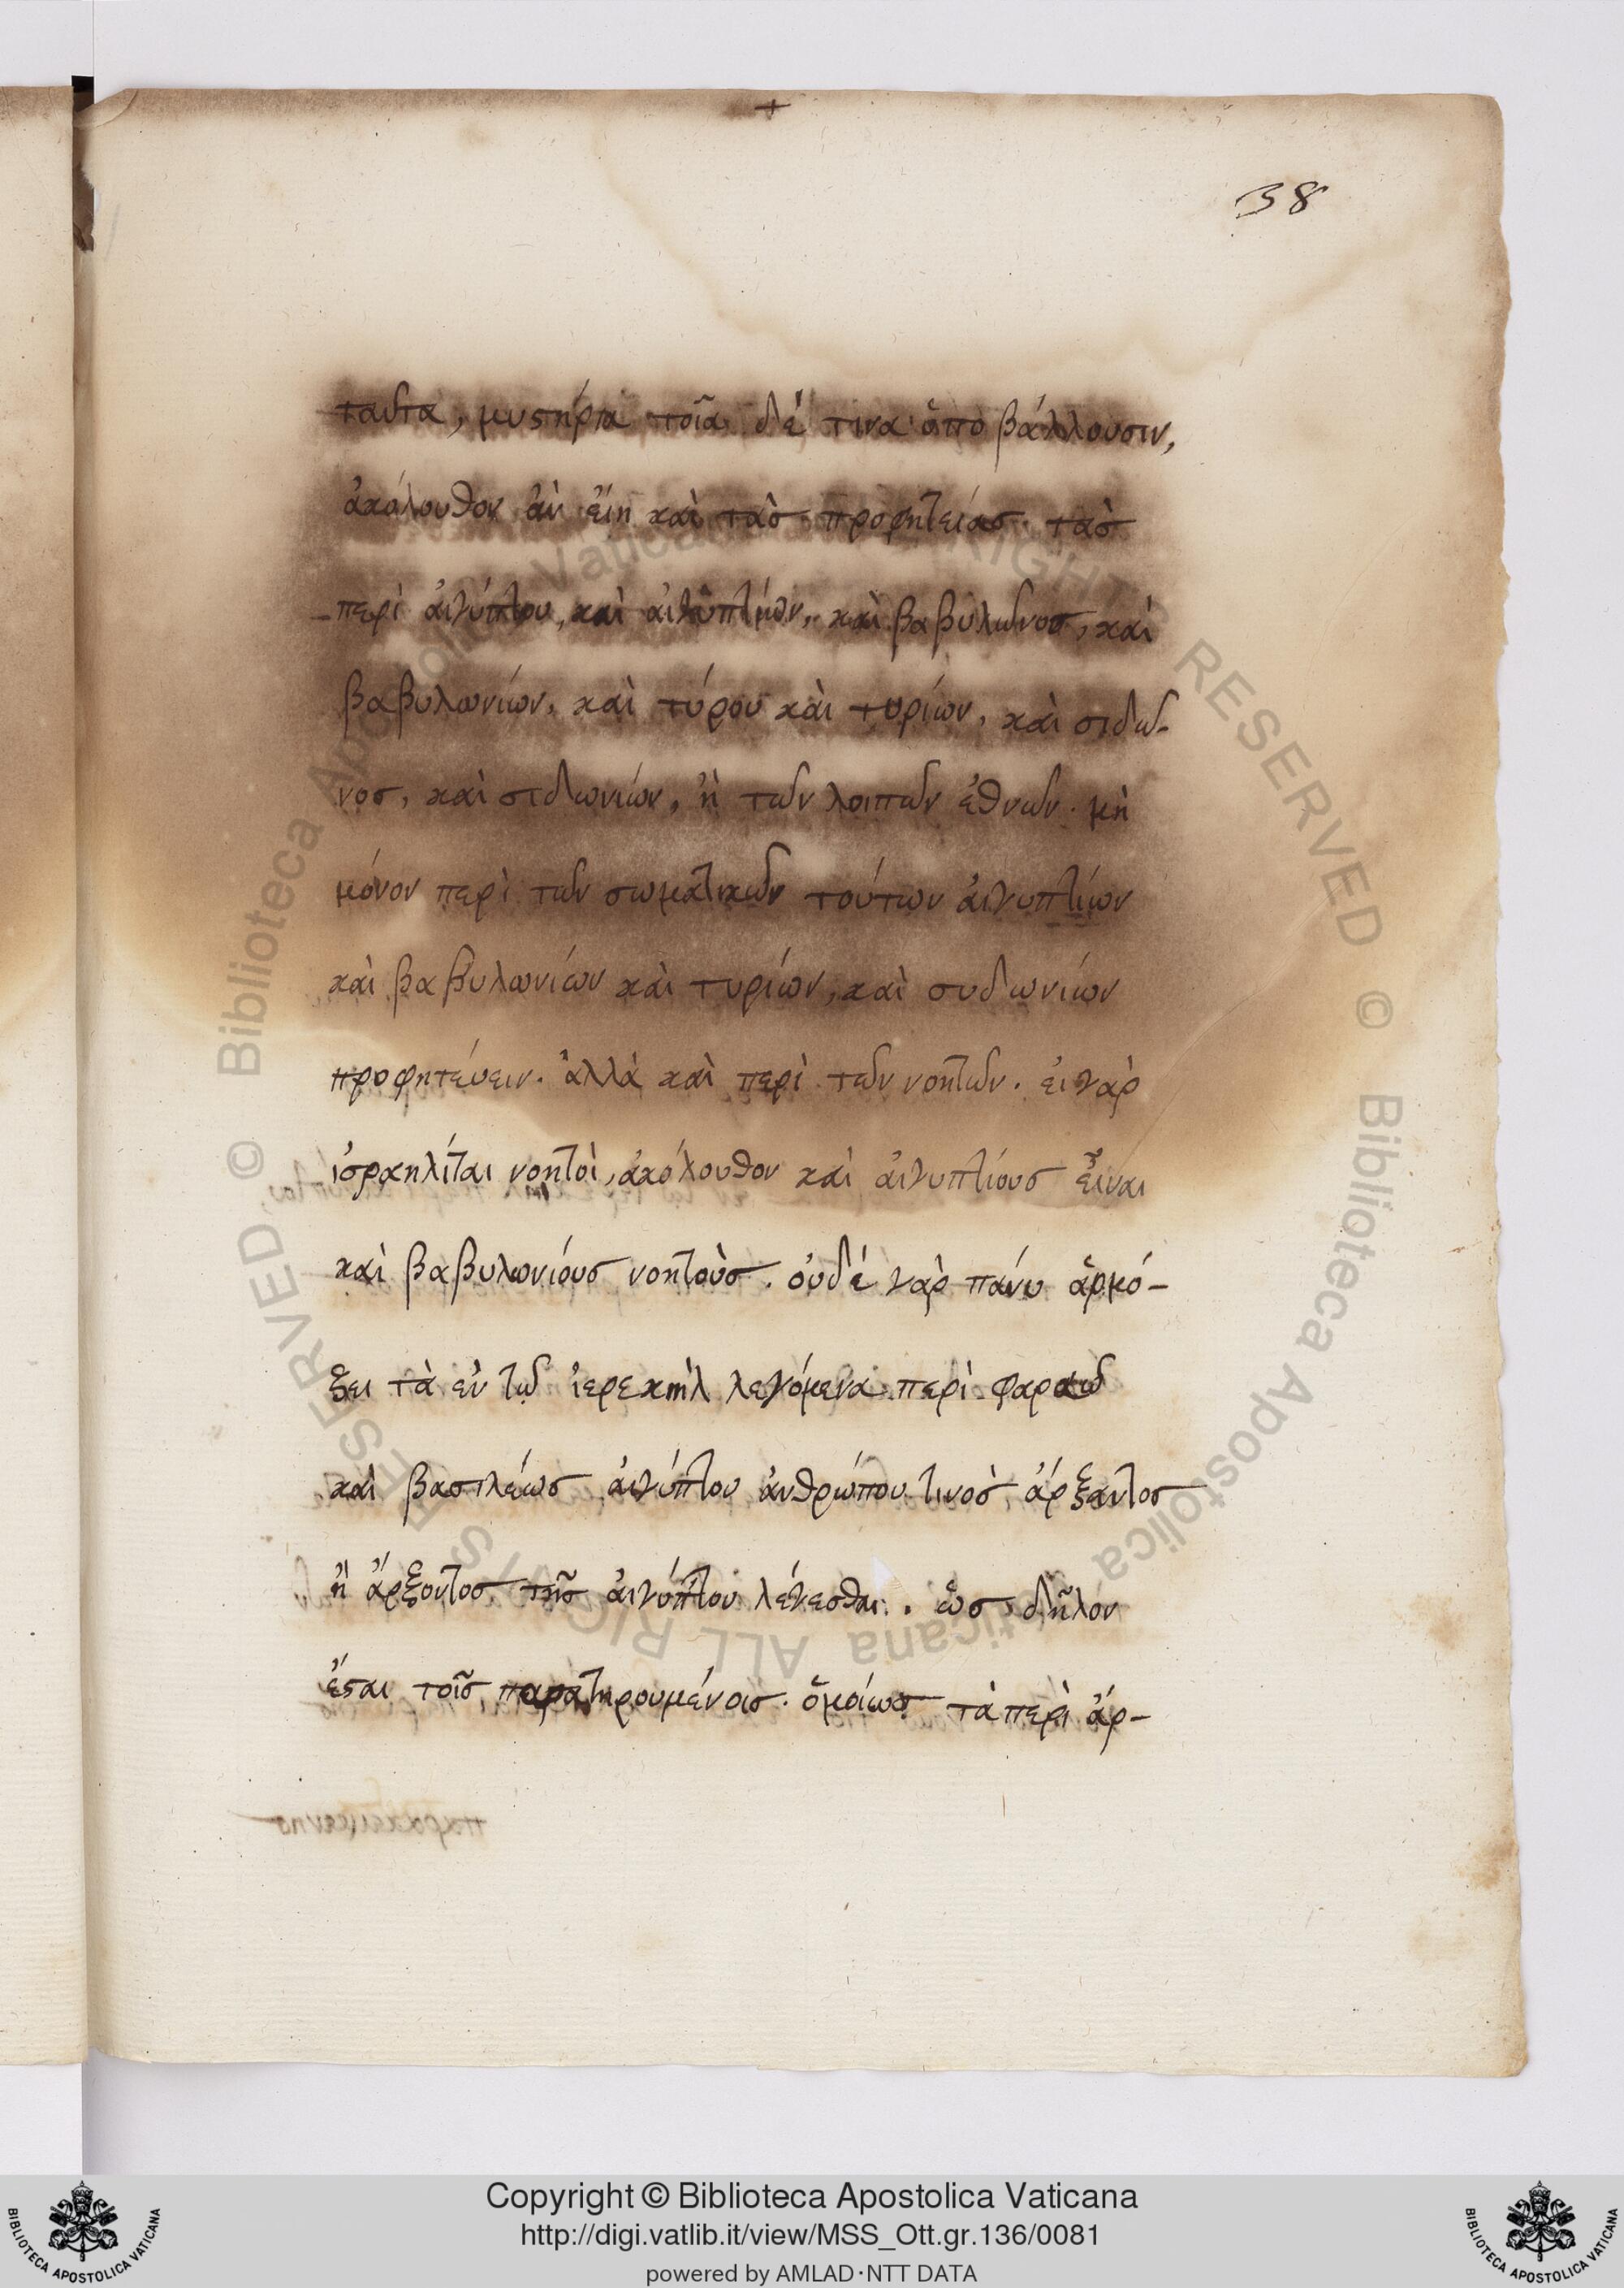 +
38
ταῦτα, μυστήρια τοῖα δέ τινα ἀπὸ βάλλουσιν,
ἀκόλουθον ἂν εἴη καὶ τὰσ προφητείασ. τὰσ
περὶ ἀιγύπτου, καὶ ἀιγυπτίων, καὶ βαβυλῶνοσ, καὶ
βαβυλωνίων, καὶ τύρου καὶ τυρίων, καὶ σιδω-
νοσ, καὶ σιδωνίων, ἢ τῶν λοιπῶν ἐθνῶν. μὴ
μόνον περὶ τῶν σωματικῶν τούτων ἀιγυπτίων
καὶ βαβυλωνίων καὶ τυρίων, καὶ συδωνίων
προφητεύειν. ἀλλὰ καὶ περὶ τῶν νοητῶν. ἐι γὰρ
ἰσραηλίται νοητοὶ, ἀκόλουθον καὶ ἀιγυπτίουσ εἶναι
καὶ βαβυλωνίουσ νοητοὺσ. ὀυδέ γὰρ πάνυ ἁρμό-
ξει τὰ ἐν τῷ ἰερεκιὴλ λεγόμενα περὶ φαραὼ
καὶ βασιλέωσ ἀιγύπτου ἀνθρώπου τινοσ ἄρξαντοσ
ἢ ἄρξοντοσ τῆσ ἀιγύπτου λέγεσθαι. ὡσ δῆλον
ἔσται τοῖσ παρατηρουμένοισ. ὁμοίωσ τὰ περὶ ἄρ-
Copyright © Biblioteca Apostolica Vaticana
http://digi.vatlib.it/view/MSS_Ott.gr.136/0081
powered by AMLAD·NTT DATA
BIBLIOTECA APOSTOLICA VATICANA
BIBLIOTECA APOSTOLICA VATICANA
© Biblioteca Apostolica Vaticana ALL RIGHTS RESERVED © Biblioteca Apostolica Vaticana ALL RIGHTS RESERVED